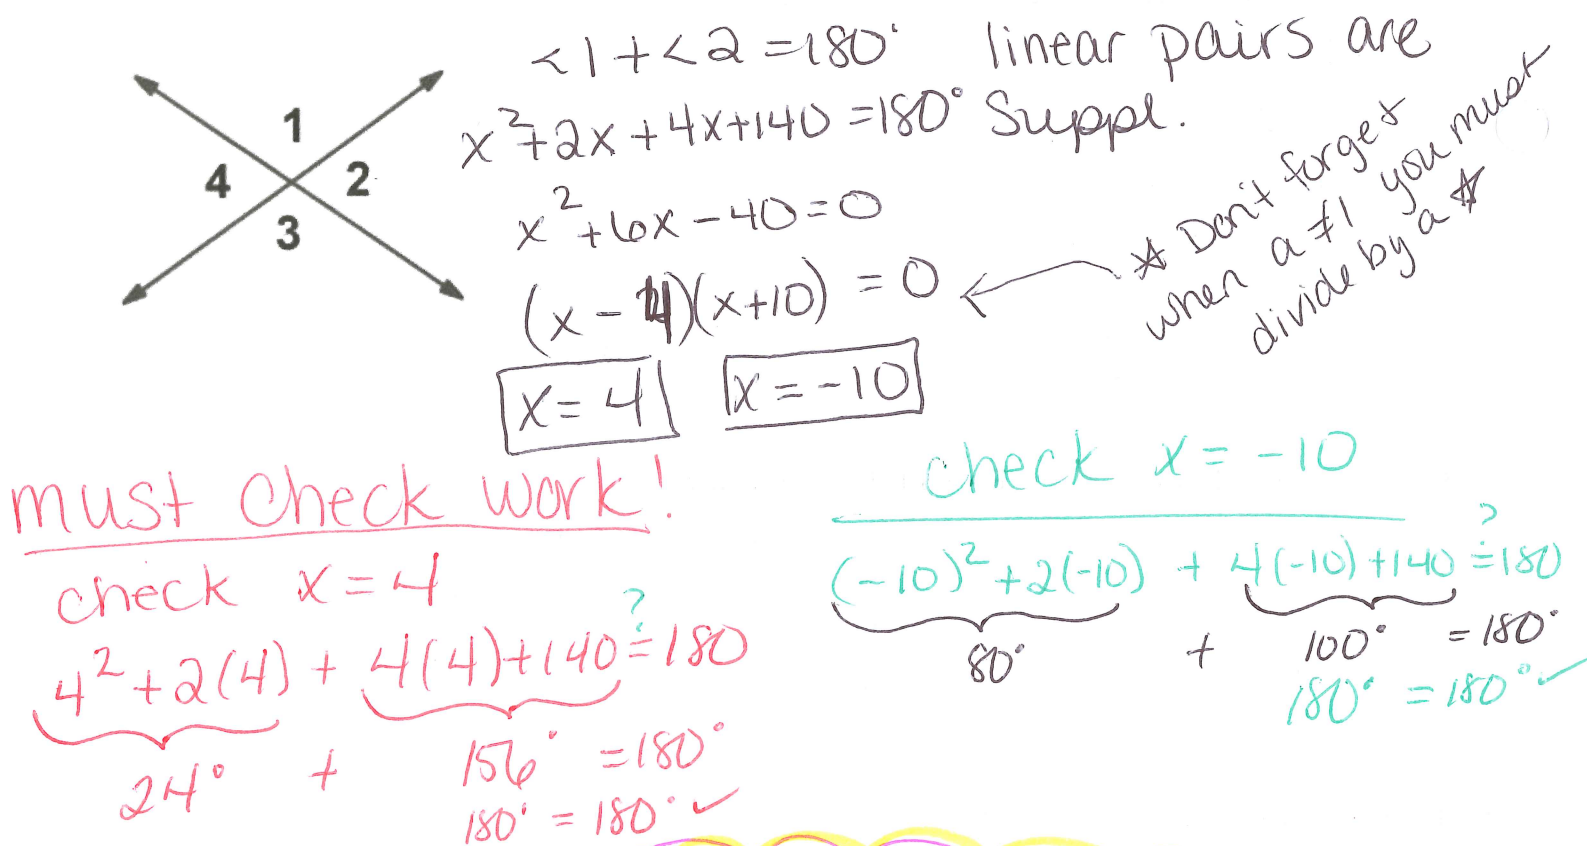 1
4
2
3
<1+<2=180° linear pairs are
x²+2x+4x+140=180° Suppl.
x²+6x-40=0
(x-4)(x+10)=0
☆ Don't forget
when a≠1 you must
divide by a ☆
x=4
x=-10
must check work!
check x=4
4²+2(4)+4(4)+140≟180
24° + 156° =180°
180° = 180° ✓
check x=-10
(-10)²+2(-10) + 4(-10)+140≟180
80° + 100° =180°
180° =180° ✓